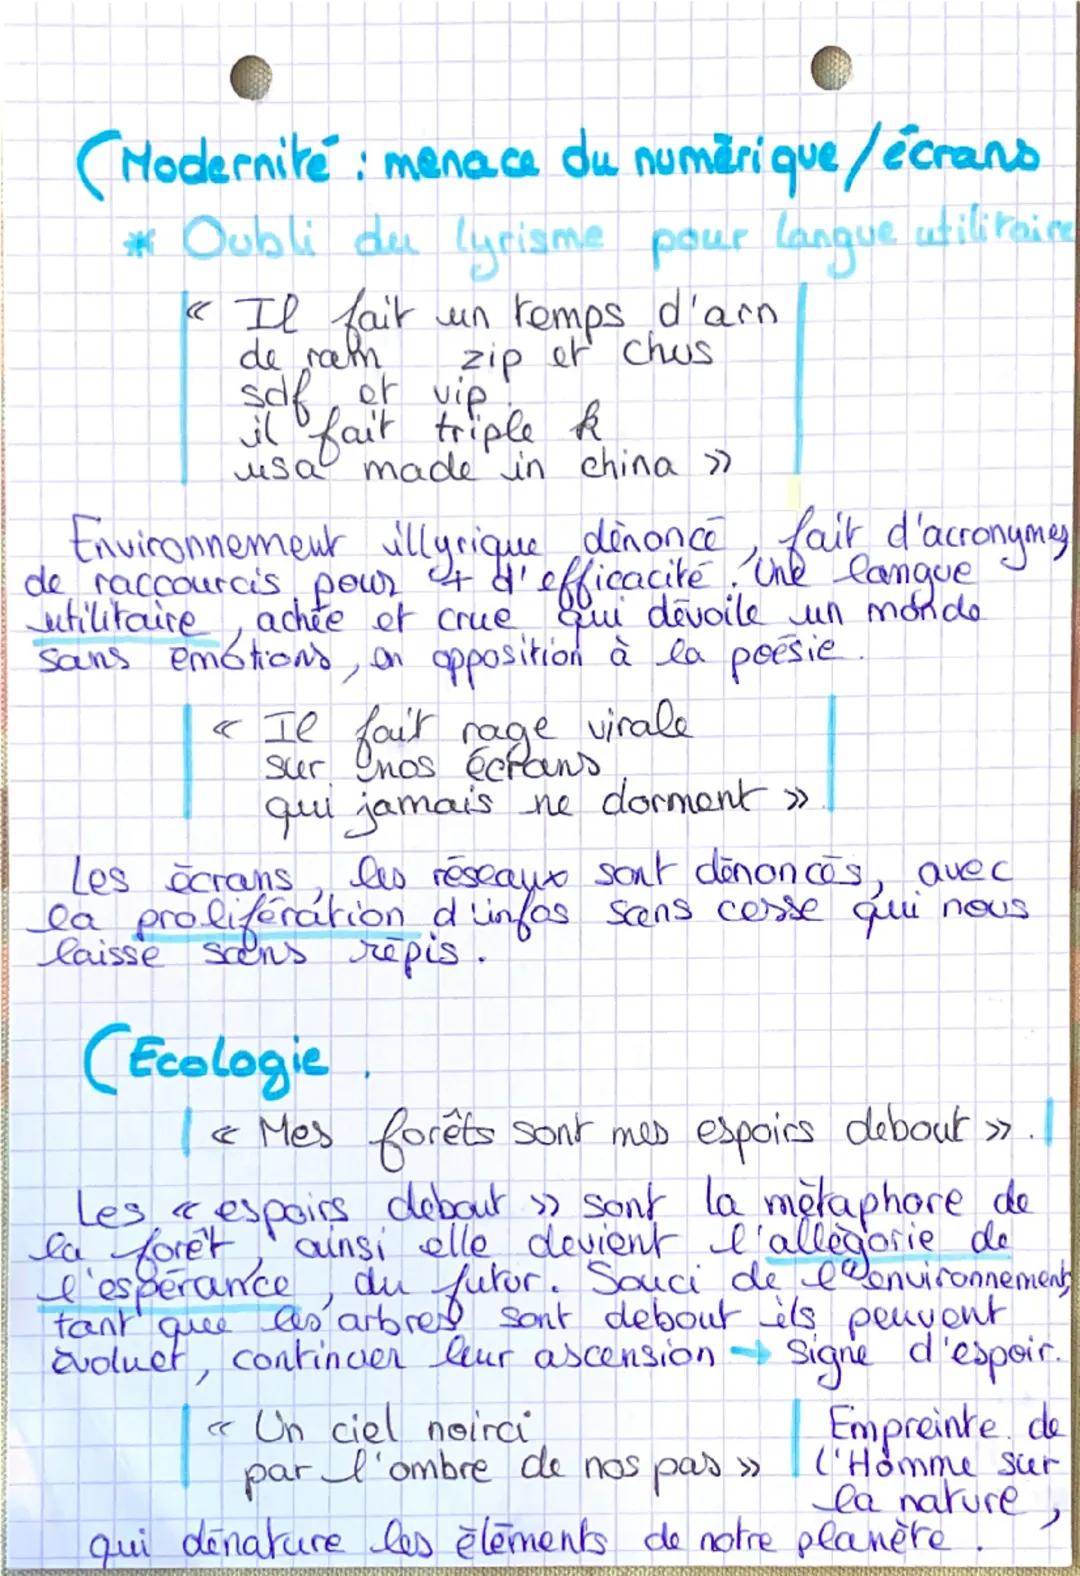 (Modernité : menace du numérique/écrans
* Oubli du lyrisme pour langue utilitaire
« Il fait un temps d'arn
de ram zip et chus
sdf et vip
il fait triple k
usa made in china »
Environnement illyrique dénoncé, fait d'acronymes
de raccourcis pour + d'efficacité. Une langue
utilitaire, achée et crue qui dévoile un monde
sans émotions, en opposition à la poésie.
« Il fait rage virale
sur nos écrans
qui jamais ne dorment »
Les écrans, les réseaux sont dénoncés, avec
la prolifération d'infos sans cesse qui nous
laisse sans répis.
(Ecologie.
« Mes forêts sont mes espoirs debout ».
Les « espoirs debout » sont la métaphore de
la forêt, ainsi elle devient l'allégorie de
l'espérance, du futur. Souci de l'environnement,
tant que les arbres sont debout ils peuvent
évoluer, continuer leur ascension → signe d'espoir.
« Un ciel noirci
par l'ombre de nos pas »
Empreinte de
l'Homme sur
la nature,
qui dénature les éléments de notre planète.